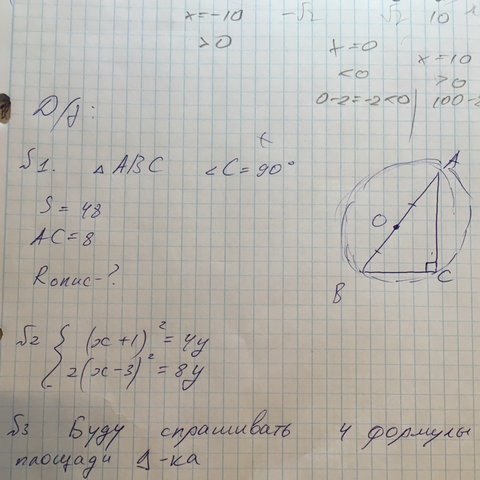 x=-10 -√2 √2 10
>0
x=0 x=10
<0 >0
0-2=-2<0 100-2
D/з:
№1. △ABC ∠C=90°
S=48
AC=8
Rопис-?
A
O
B
C
№2 { (x+1)²=4y
2(x-3)²=8y
№3 Буду спрашивать 4 формулы
площади △-ка